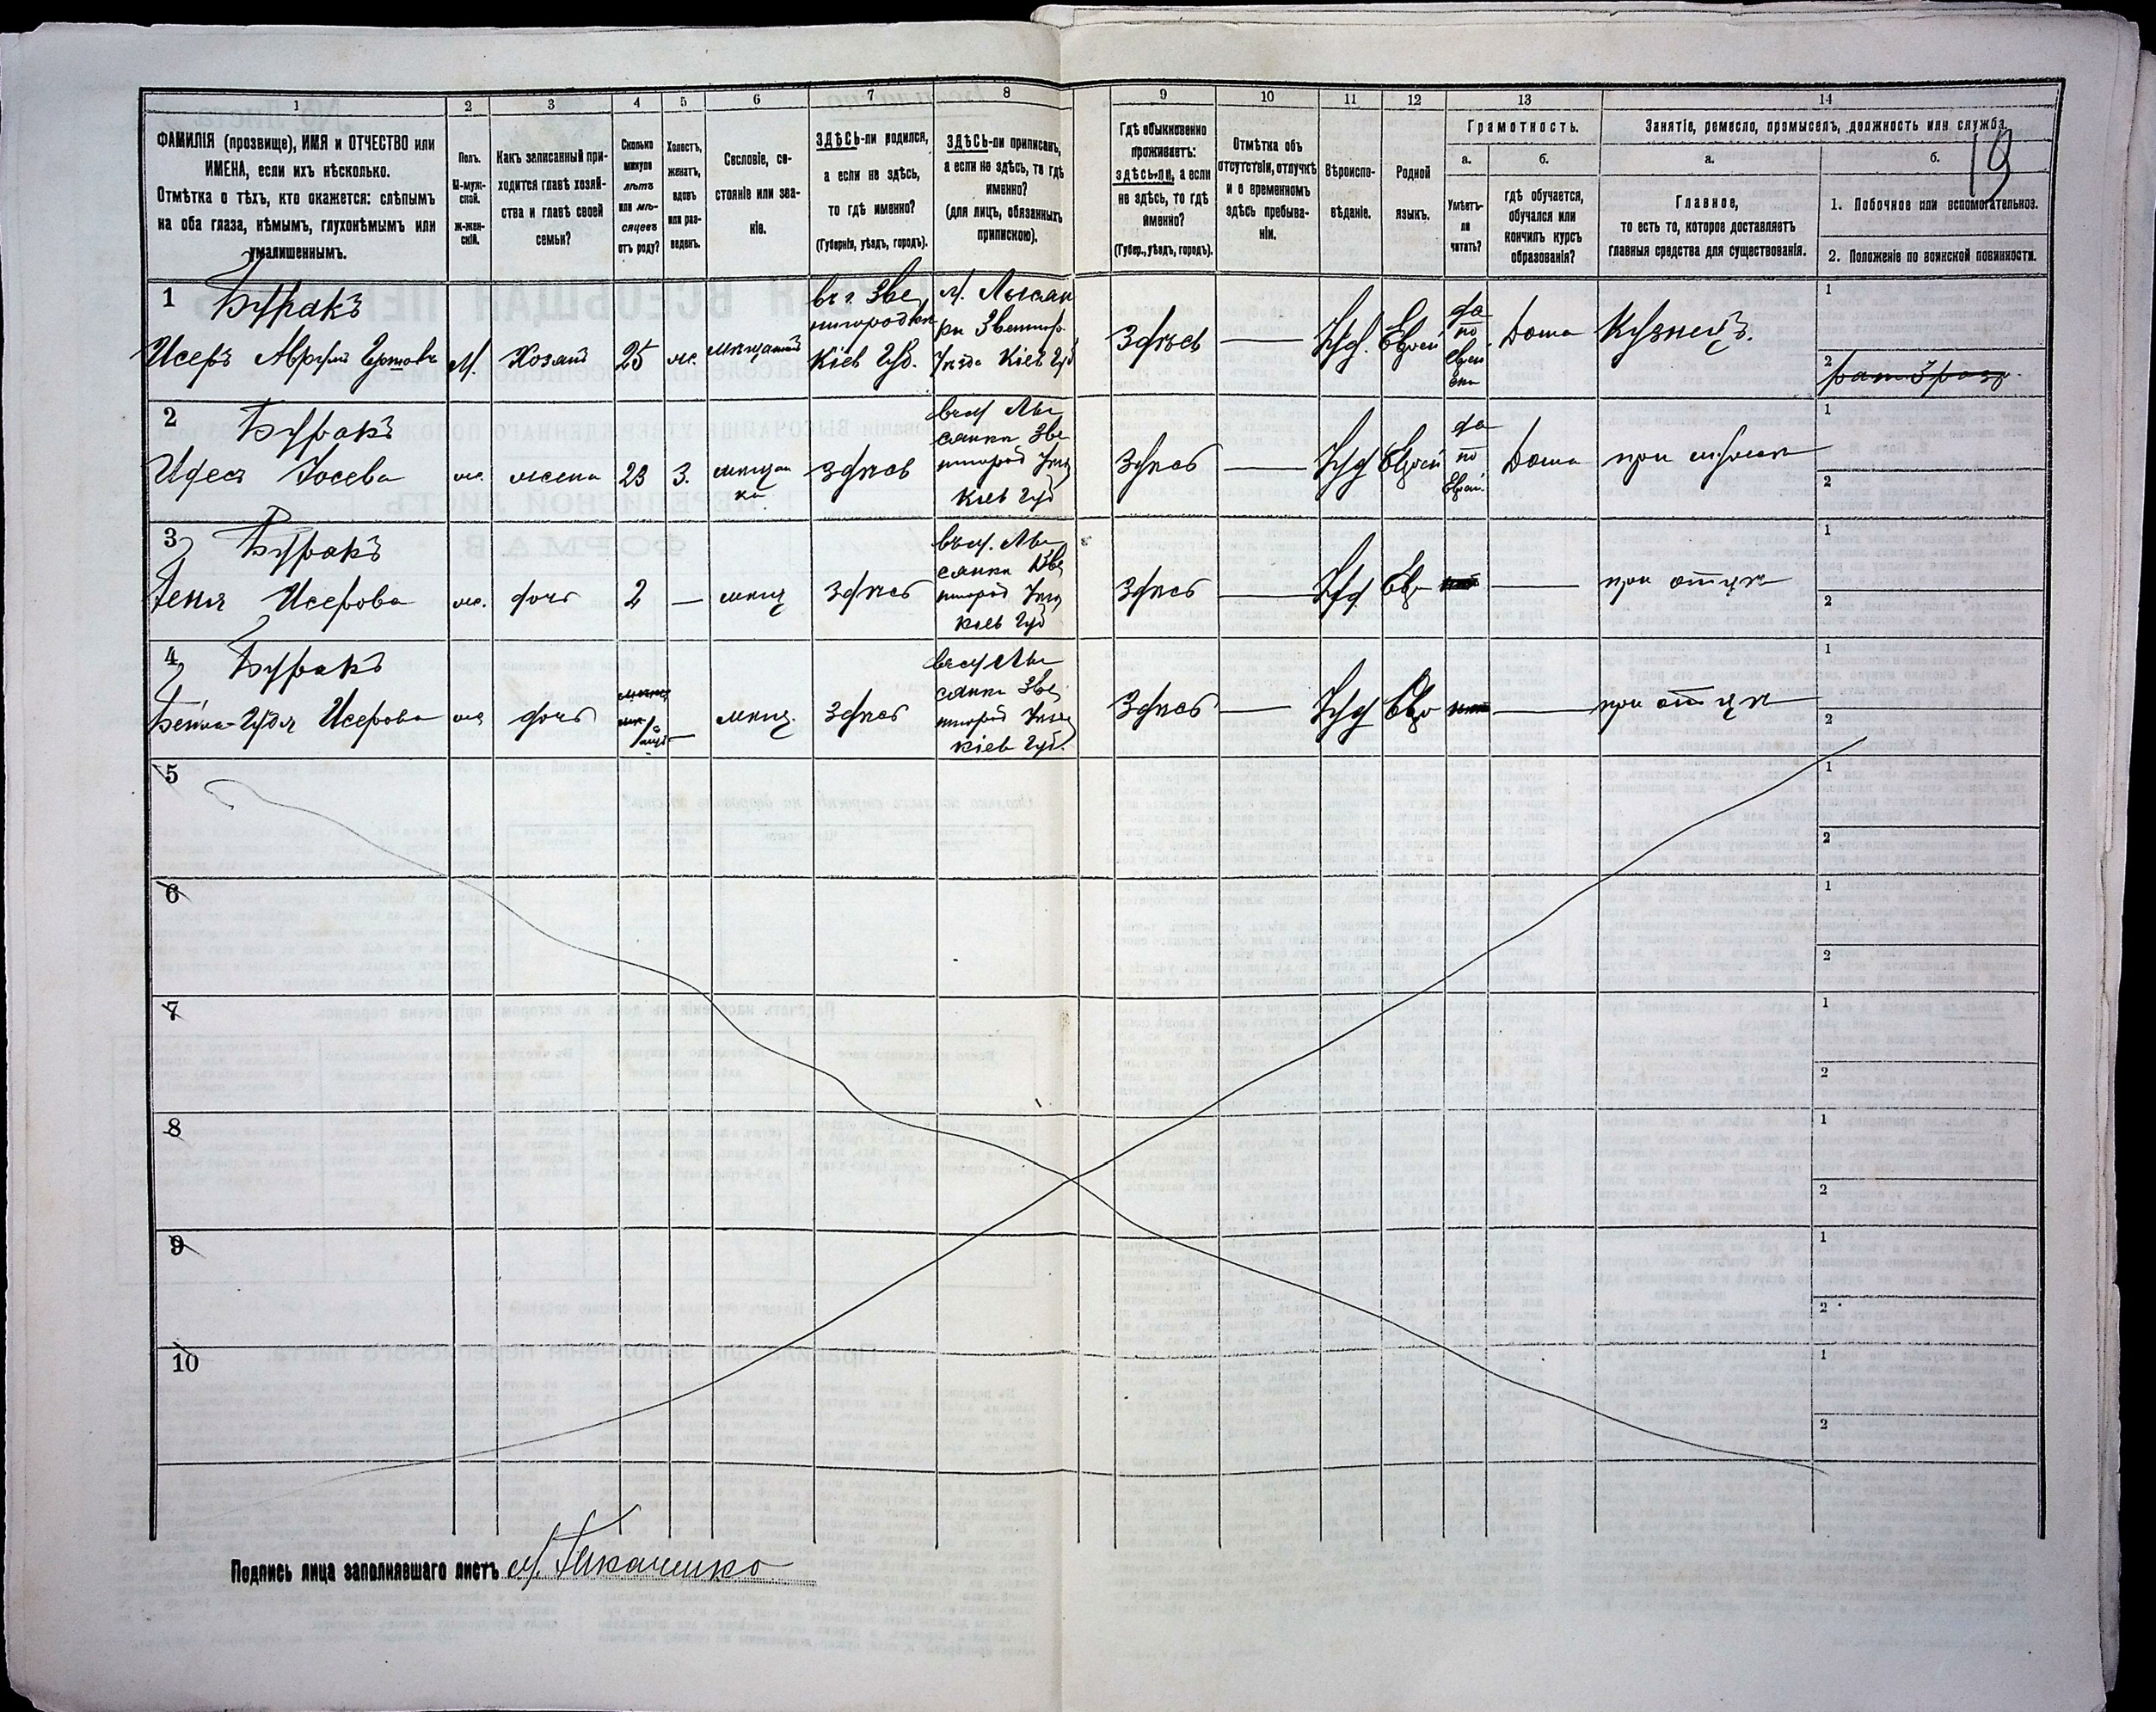 1 2 3 4 5 6 7 8 9 10 11 12 13 14
ФАМИЛІЯ (прозвище), ИМЯ и ОТЧЕСТВО или
ИМЕНА, если ихъ нѣсколько.
Отмѣтка о тѣхъ, кто окажется: слѣпымъ
на оба глаза, нѣмымъ, глухонѣмымъ или
умалишеннымъ.
Полъ.
М-муж-
ской.
ж-жен-
скій.
Какъ записанный при-
ходится главѣ хозяй-
ства и главѣ своей
семьи?
Сколько
минуло
лѣтъ
или мѣ-
сяцевъ
отъ роду?
Холостъ,
женатъ,
вдовъ
или раз-
веденъ.
Сословіе, со-
стояніе или зва-
ніе.
ЗДѢСЬ-ли родился,
а если не здѣсь,
то гдѣ именно?
(Губернія, уѣздъ, городъ).
ЗДѢСЬ-ли приписанъ,
а если не здѣсь, то гдѣ
именно?
(для лицъ, обязанныхъ
припискою).
Гдѣ обыкновенно
проживаетъ:
здѣсь-ли, а если
не здѣсь, то гдѣ
именно?
(Губер., уѣздъ, городъ).
Отмѣтка объ
отсутствіи, отлучкѣ
и о временномъ
здѣсь пребыва-
ніи.
Вѣроиспо-
вѣданіе.
Родной
языкъ.
Грамотность.
а.
Умѣетъ-
ли
читать?
б.
гдѣ обучается,
обучался или
кончилъ курсъ
образованія?
Занятіе, ремесло, промыселъ, должность или служба.
19
а.
Главное,
то есть то, которое доставляетъ
главныя средства для существованія.
б.
1. Побочное или вспомогательное.
2. Положеніе по воинской повинности.
1 Буракъ
Исеръ
М. Хозяинъ 25 ж. мѣщанинъ
въ г. Зве
нигородкѣ
Кіев Губ.
М. Лысян
ки Звениго
Уѣзда Кіев Губ
Здѣсь — Іуд. Еврей
да
по
еврей
ски
Дома Кузнецъ.
1
2
2 Буракъ
Идеся Іосева жс. жена 23 З. мѣщан
ка
Здѣсь
въ м Лы
сянки Зве
нигород Уѣз
Кіев Губ
Здѣсь — Іуд Еврей
да
по
Еврей.
Дома при мужѣ
1
2
3 Буракъ
Исерова ж. дочь 2 — мѣщ Здѣсь
въ м. Лы
сянки Зве
нигород Уѣз
Кіев Губ
Здѣсь — Іуд. Евр — при отцѣ
1
2
4 Буракъ
Исерова ж дочь — мѣщ. Здѣсь
въ м Лы
сянки Зве
нигород Уѣзд
Кіев Губ.
Здѣсь — Іуд Евр — при отцѣ
1
2
5
1
2
6
1
2
7
1
2
8
1
2
9
1
2
10
1
2
Подпись лица заполнявшаго листъ М. Ткаченко